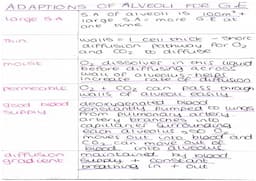 ADAPTIONS OF ALVEOLI FOR G.E
large S.A
S.A of alveoli is
large S.A = more G.E at
one time
Thin
walls = 1 cell thick - short
diffusion pathway for O2
and CO2 to diffuse
moist
O2 dissolves in the liquid
before diffusing across
wall of alveolus - helps
increase rate of diffusion
permeable
O2 + CO2 can pass through
walls of alveoli easily
good blood
supply
deoxygenated blood
constantly pumped to lungs
from pulmonary artery -
artery branches into
capillaries surrounding
each alveolus so
moves out into blood and
O2 can move out of
blood into alveolus
diffusion
gradient
maintained by blood
supply + constant
breathing in + out